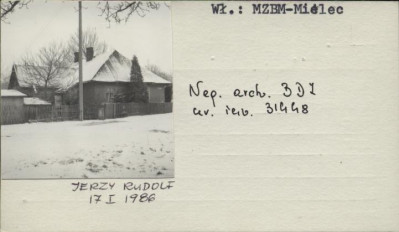 Wł.: MZBM-Mielec
Neg. arch. 3DZ
nr. inw. 31448
JERZY RUDOLF
17 I 1986